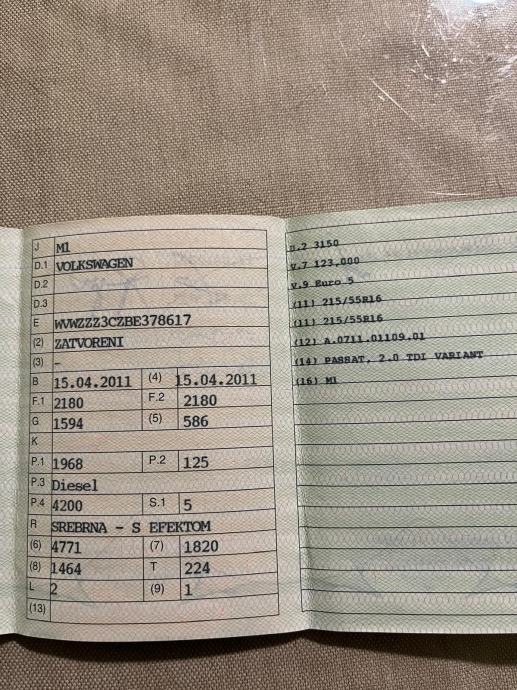 J M1
D.1 VOLKSWAGEN
D.2
D.3
E WVWZZZ3CZBE378617
(2) ZATVORENI
(3) -
B 15.04.2011 (4) 15.04.2011
F.1 2180 F.2 2180
G 1594 (5) 586
K
P.1 1968 P.2 125
P.3 Diesel
P.4 4200 S.1 5
R SREBRNA - S EFEKTOM
(6) 4771 (7) 1820
(8) 1464 T 224
L 2 (9) 1
(13)
D.2 3150
V.7 123,000
V.9 Euro 5
(11) 215/55R16
(11) 215/55R16
(12) A.0711.01109.01
(14) PASSAT, 2.0 TDI VARIANT
(16) M1